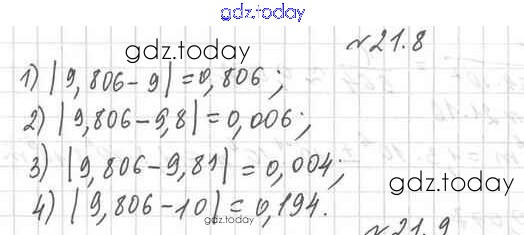 gdz.today
№21.8
gdz.today
1) |9,806-9|=0,806;
2) |9,806-9,8|=0,006;
3) |9,806-9,81|=0,004;
gdz.today
4) |9,806-10|=0,194.
gdz.today
№21.9